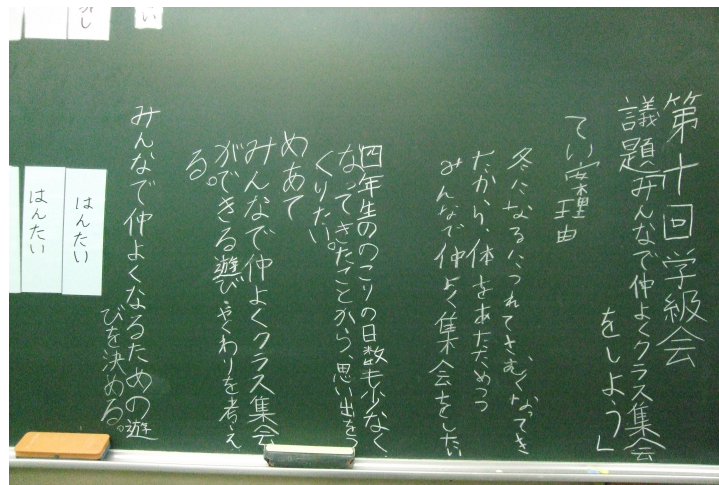 第十回学級会
議題「みんなで仲よくクラス集会
をしよう」
てい案理由
冬になるにつれてさむくなってき
たから、体をあたためつつ
みんなで仲よく集会をしたい
四年生ののこりの日数も少なく
なってきたことから、思い出をつ
くりたい。
めあて
みんなで仲よくクラス集会
ができる遊び・やくわりを考え
る。
みんなで仲よくなるための遊
びを決める。
はんたい
はんたい